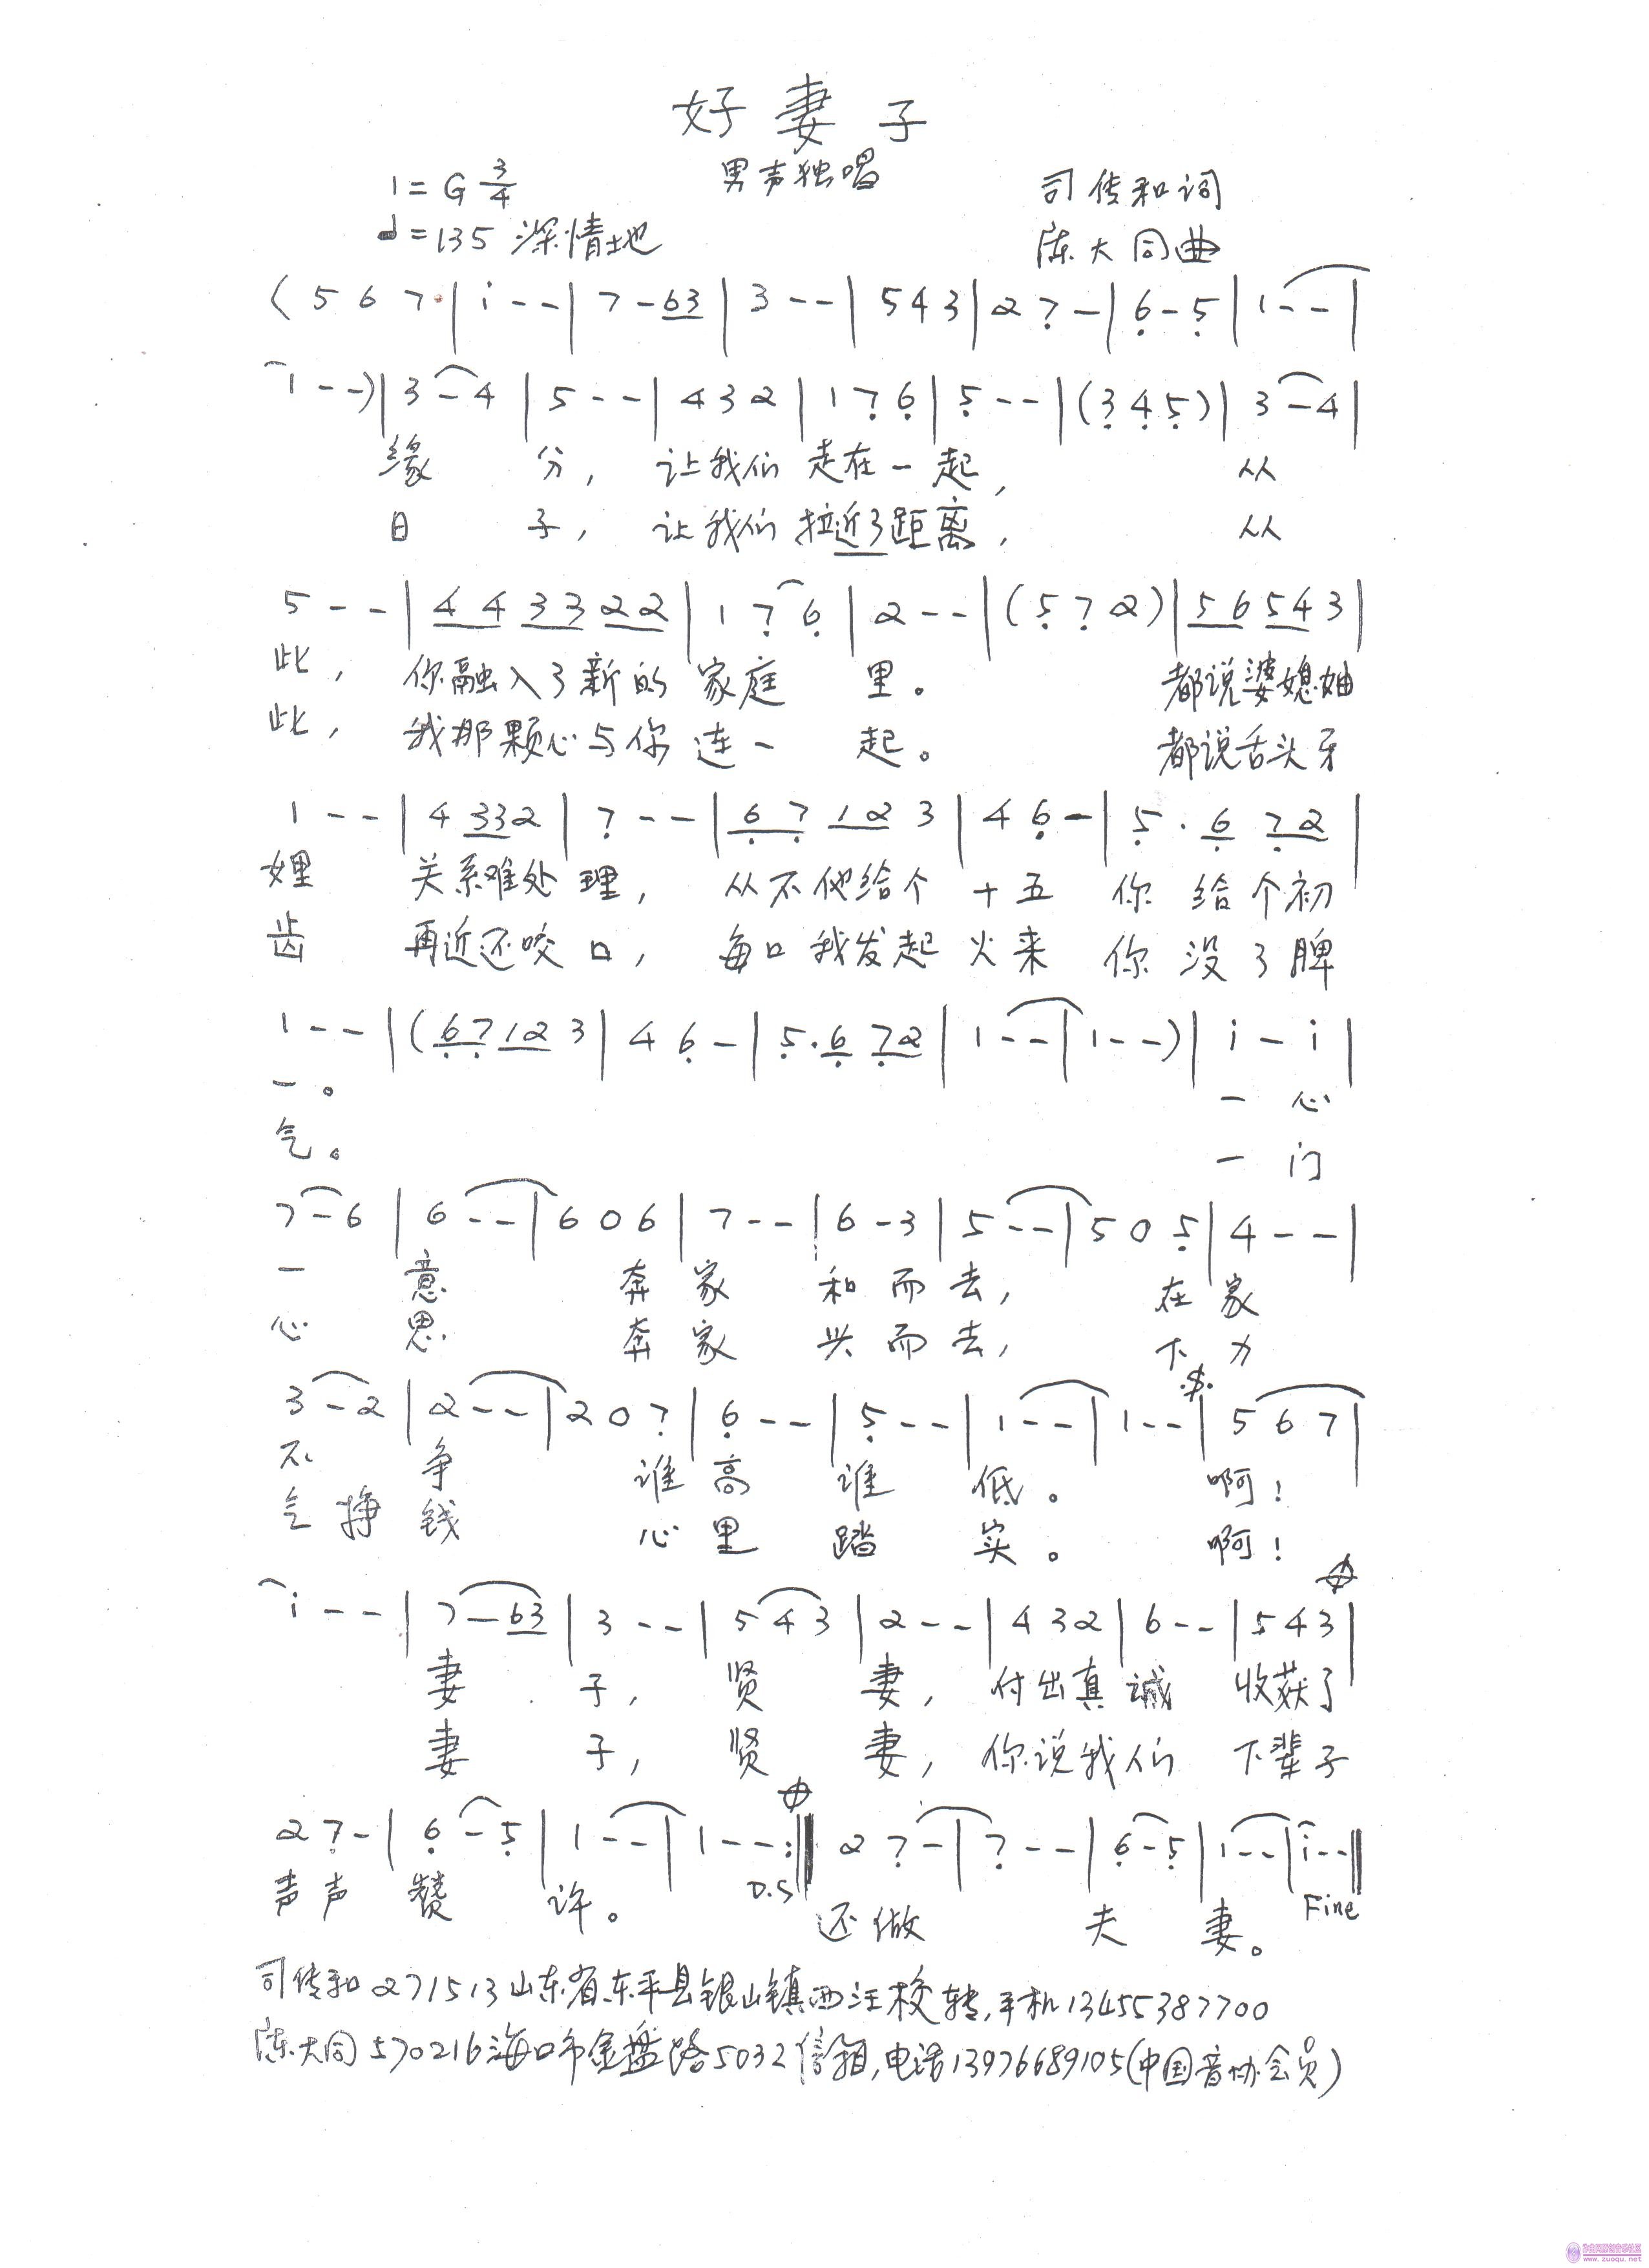 好妻子
男声独唱
1=G 3/4
司传和词
♩=135 深情地
陈大同曲
(5 6 7 | i - - | 7 - 63 | 3 - - | 5 4 3 | 2 7̣ - | 6̣ - 5̣ | 1 - - |
1 - -) | 3 - 4 | 5 - - | 4 3 2 | 1 7̣ 6̣ | 5̣ - - | (3̣ 4̣ 5̣) | 3 - 4 |
缘 分, 让我们 走在一起, 从
日 子, 让我们 拉近了距离, 从
5 - - | 4 4 3 3 2 2 | 1 7̣ 6̣ | 2 - - | (5̣ 7̣ 2) | 5 6 5 4 3 |
此, 你融入了新的 家庭 里。 都说婆媳妯
此, 我那颗心与你 连一 起。 都说舌头牙
1 - - | 4 3 3 2 | 7̣ - - | 6̣ 7̣ 1 2 3 | 4 6̣ - | 5̣ . 6̣ 7̣ 2 |
娌 关系难处 理, 从不他给个 十五 你 给个初
齿 再近还咬 口, 每口我发起 火来 你 没了脾
1 - - | (6̣ 7̣ 1 2 3 | 4 6̣ - | 5̣ . 6̣ 7̣ 2 | 1 - - | 1 - -) | i - i |
一。 一 心
气。 一 门
7 - 6 | 6 - - | 6 0 6 | 7 - - | 6 - 3 | 5 - - | 5 0 5̣ | 4 - - |
一 意 奔 家 和 而 去, 在 家
心 思 奔 家 兴 而 去, 下 力
3 - 2 | 2 - - | 2 0 7̣ | 6̣ - - | 5̣ - - | 1 - - | 1 - - | 5 6 7 |
不 争 谁 高 谁 低。 啊!
气 挣 钱 心 里 踏 实。 啊!
i - - | 7 - 63 | 3 - - | 5 4 3 | 2 - - | 4 3 2 | 6 - - | 5 4 3 |
妻 子, 贤 妻, 付出真 诚 收获了
妻 子, 贤 妻, 你说我们 下辈子
2 7̣ - | 6̣ - 5̣ | 1 - - | 1 - - :‖ 2 7̣ - | 7̣ - - | 6̣ - 5̣ | 1 - - | i - - ‖
声声 赞 许。 D.S 还做 夫 妻。 Fine
司传和 271513 山东省东平县银山镇西汪校转,手机13455387700
陈大同 570216 海口市金盘路5032信箱,电话13976689105(中国音协会员)
www.zuoqu.net